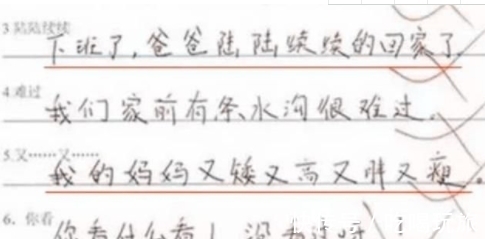 3 陆陆续续
下班了,爸爸陆陆续续的回家了.
4.难过
我们家前有条水沟很难过。
5.又……又……
我的妈妈又矮又高又胖又瘦。
6. 你看
你看什么看